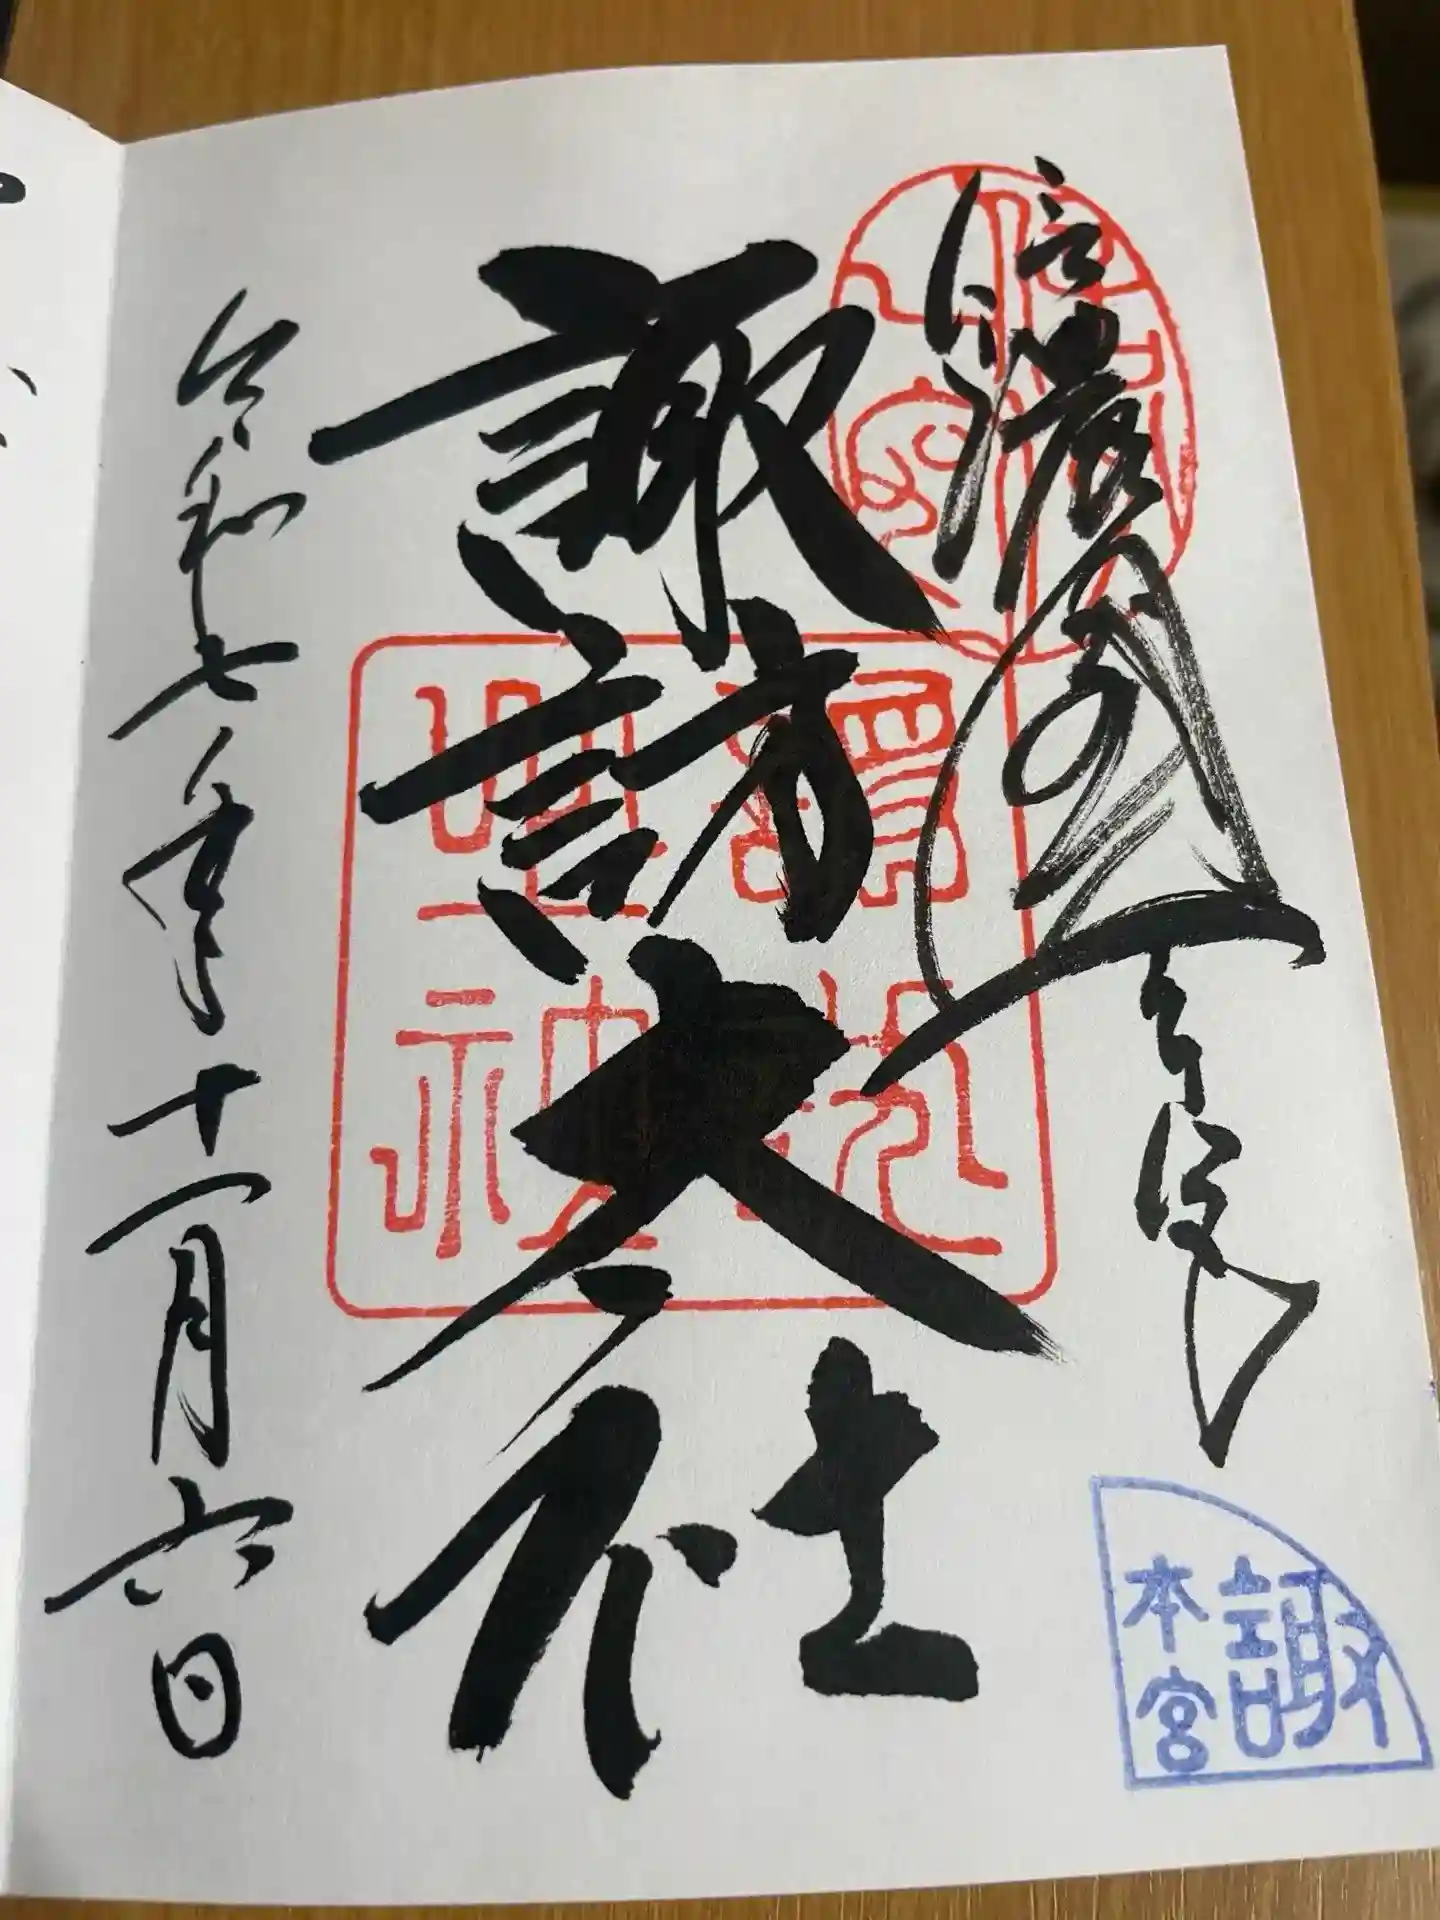 信濃國一之宮
諏訪大社
令和七年十一月六日
諏
本宮